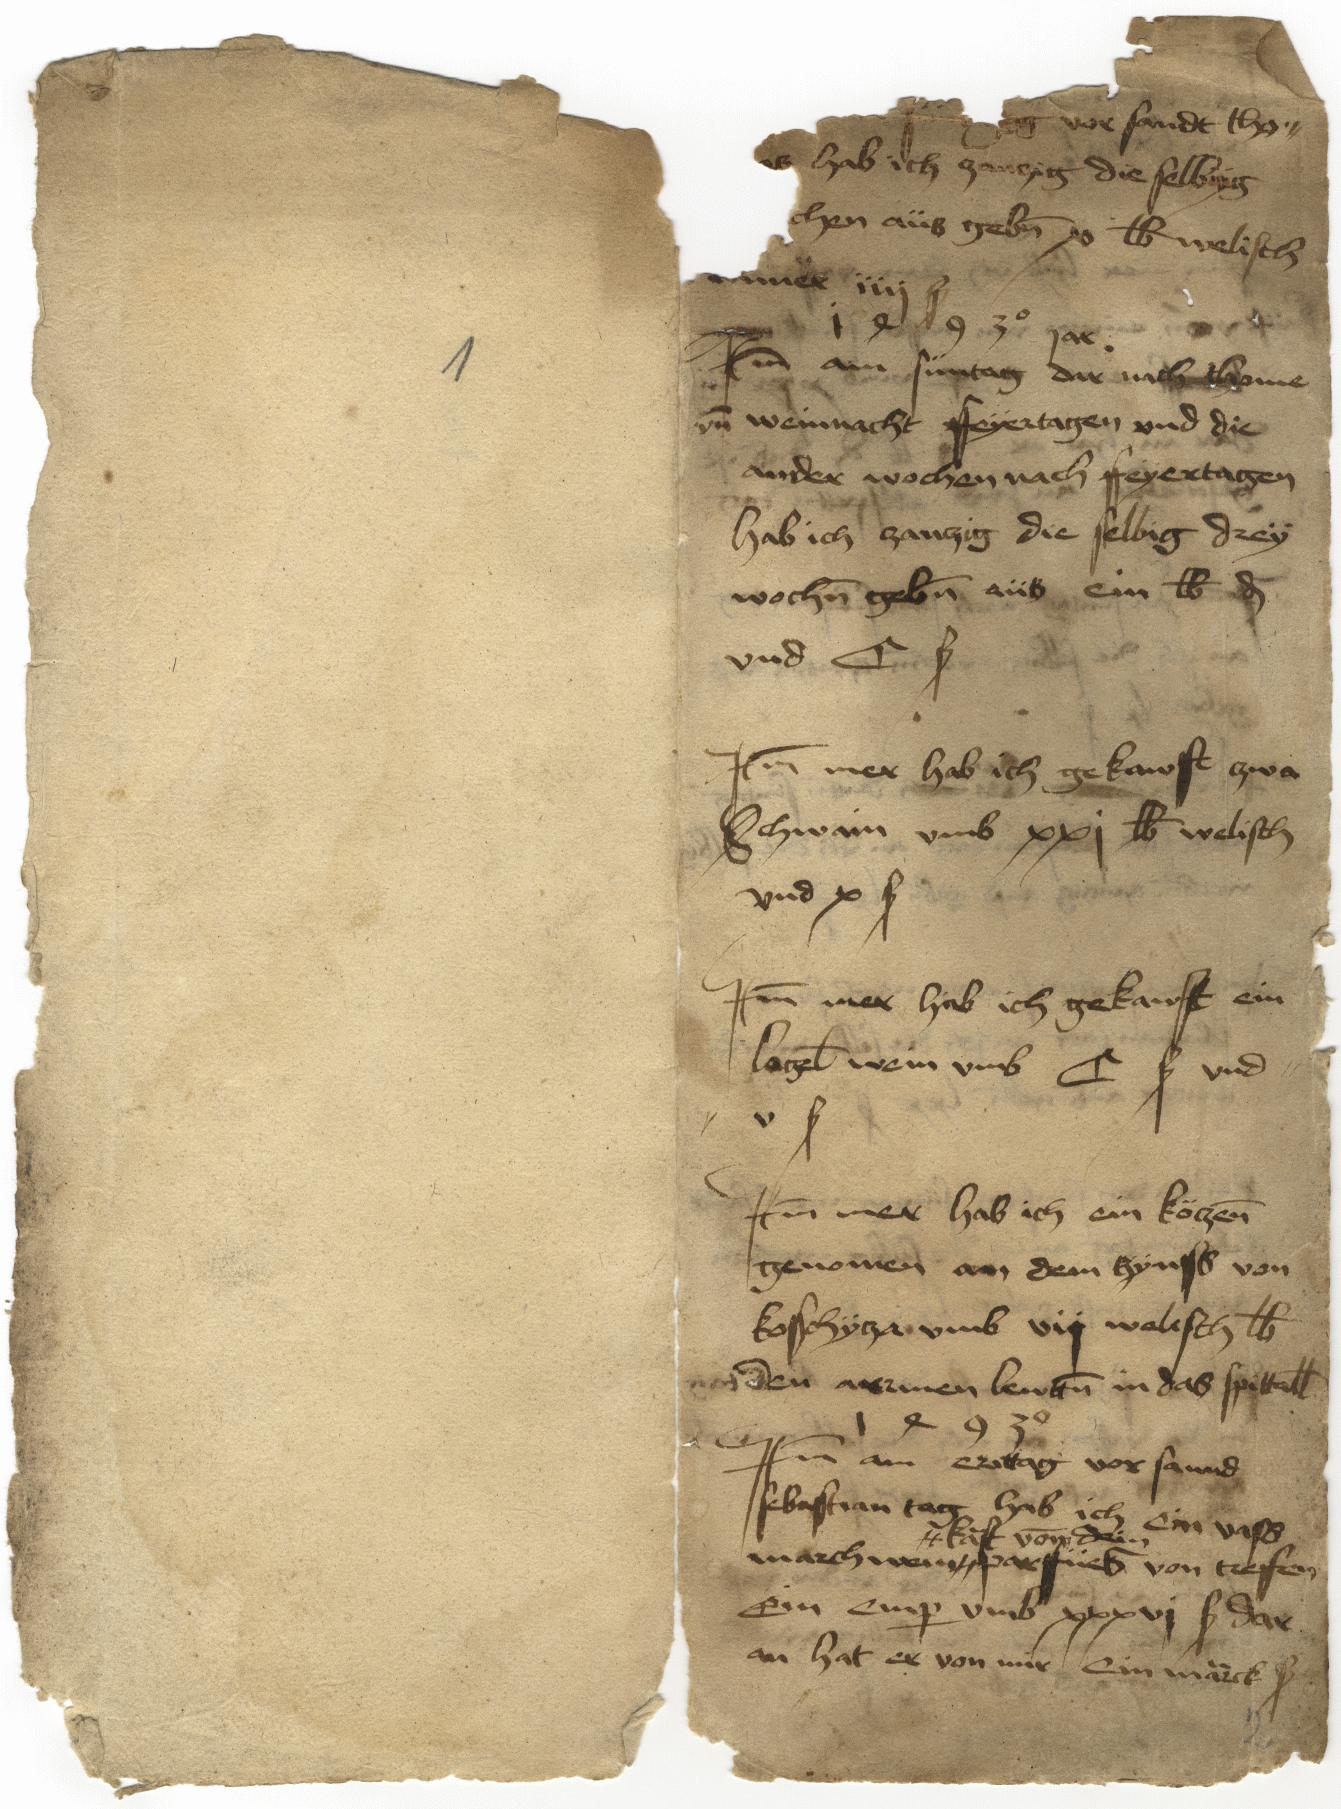 1
vor sandt tho„
as hab ich zanczig die selbig
chen aüs gebn̄ x lb welisch
mmer iiij ß
1 4 9 3° jar.
Itm̄ am süntag dar nach thome
vn̄ weinnacht ffeyertagen vnd die
ander wochen nach ffeyertagen
hab ich zanczig die selbig drey
wochn̄ gebn̄ aüs ein lb d
vnd C ß
Itm̄ mer hab ich gekawft zwa
Schwain vmb xxj lb welisch
vnd x ß
Itm̄ mer hab ich gekawft ein
lagel wein vmb C ß vnd
v ß
Itm̄ mer hab ich ein köczen̄
genomen an dem zynss von
kosschycza vmb vij welisch lb
den armen lewtn̄ in das spittall
1 4 9 3°
Itm̄ am erittag vor sannd
sebastian tag hab ich ein vass
kaft von dem
marchwein parfüeß von treffen
Ein emp vmb xxxvj ß dar
an hat er von mir ein märck ß